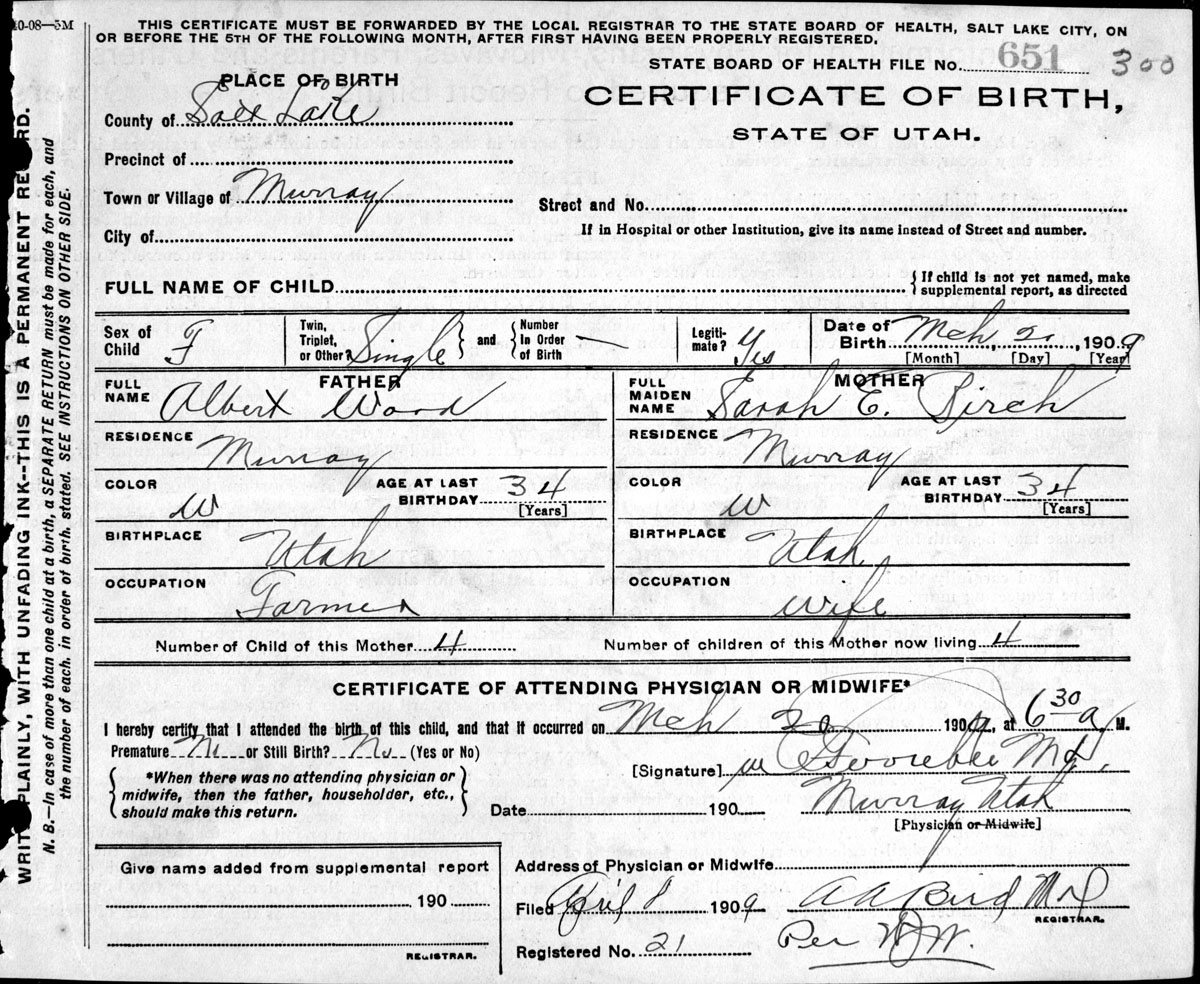 10-08—5M
THIS CERTIFICATE MUST BE FORWARDED BY THE LOCAL REGISTRAR TO THE STATE BOARD OF HEALTH, SALT LAKE CITY, ON
OR BEFORE THE 5TH OF THE FOLLOWING MONTH, AFTER FIRST HAVING BEEN PROPERLY REGISTERED.
STATE BOARD OF HEALTH FILE No. 651 300
PLACE OF BIRTH
CERTIFICATE OF BIRTH,
STATE OF UTAH.
County of Salt Lake
Precinct of
Town or Village of Murray
Street and No.
City of
If in Hospital or other Institution, give its name instead of Street and number.
FULL NAME OF CHILD
{If child is not yet named, make supplemental report, as directed
Sex of Child F
Twin, Triplet, or Other? Single } and { Number In Order of Birth —
Legiti-mate? Yes
Date of Birth Mch 2 1909
[Month] [Day] [Year]
FATHER
FULL NAME Albert Wood
RESIDENCE Murray
COLOR W AGE AT LAST BIRTHDAY 34
[Years]
BIRTHPLACE Utah
OCCUPATION Farmer
Number of Child of this Mother 4
MOTHER
FULL MAIDEN NAME Sarah E. Birch
RESIDENCE Murray
COLOR W AGE AT LAST BIRTHDAY 34
[Years]
BIRTHPLACE Utah
OCCUPATION Wife
Number of children of this Mother now living 4
CERTIFICATE OF ATTENDING PHYSICIAN OR MIDWIFE*
I hereby certify that I attended the birth of this child, and that it occurred on Mch 20 1909, at 6 30 a M.
Premature No or Still Birth? No (Yes or No)
{*When there was no attending physician or midwife, then the father, householder, etc., should make this return.}
[Signature] M.D.
Date 190 Murray Utah
[Physician or Midwife]
Give name added from supplemental report
190
REGISTRAR.
Address of Physician or Midwife
Filed April 1909 A A Bird MD
REGISTRAR.
Registered No. 21 Per
WRITE PLAINLY, WITH UNFADING INK--THIS IS A PERMANENT RECORD.
N. B.—In case of more than one child at a birth, a SEPARATE RETURN must be made for each, and
the number of each, in order of birth, stated. SEE INSTRUCTIONS ON OTHER SIDE.